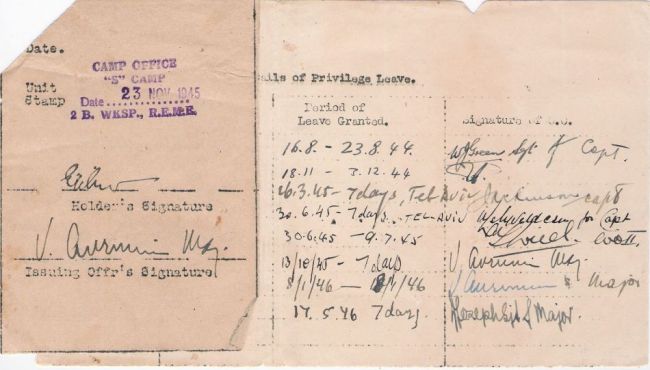 Date.
CAMP OFFICE
"S" CAMP
Unit
Stamp
Date 23 NOV 1945
2 B. WKSP., R.E.M.E.
Holder's Signature
V. Maj.
Issuing Offr's Signature
ails of Privilege Leave.
Period of
Leave Granted.
Signature of O.C.
16.8. - 23.8.44. Green Sgt. Capt.
18.11 - 3.12.44
6.3.45 - 7 days, Tel Aviv Capt
30.6.45 - 7 days. TEL-AVIV for Capt
30.6.45 - 9.7.45
13/10/45 - 7 days V. Maj.
8/1/46 - /1/46 V. Major
17.5.46 7 days. Major.